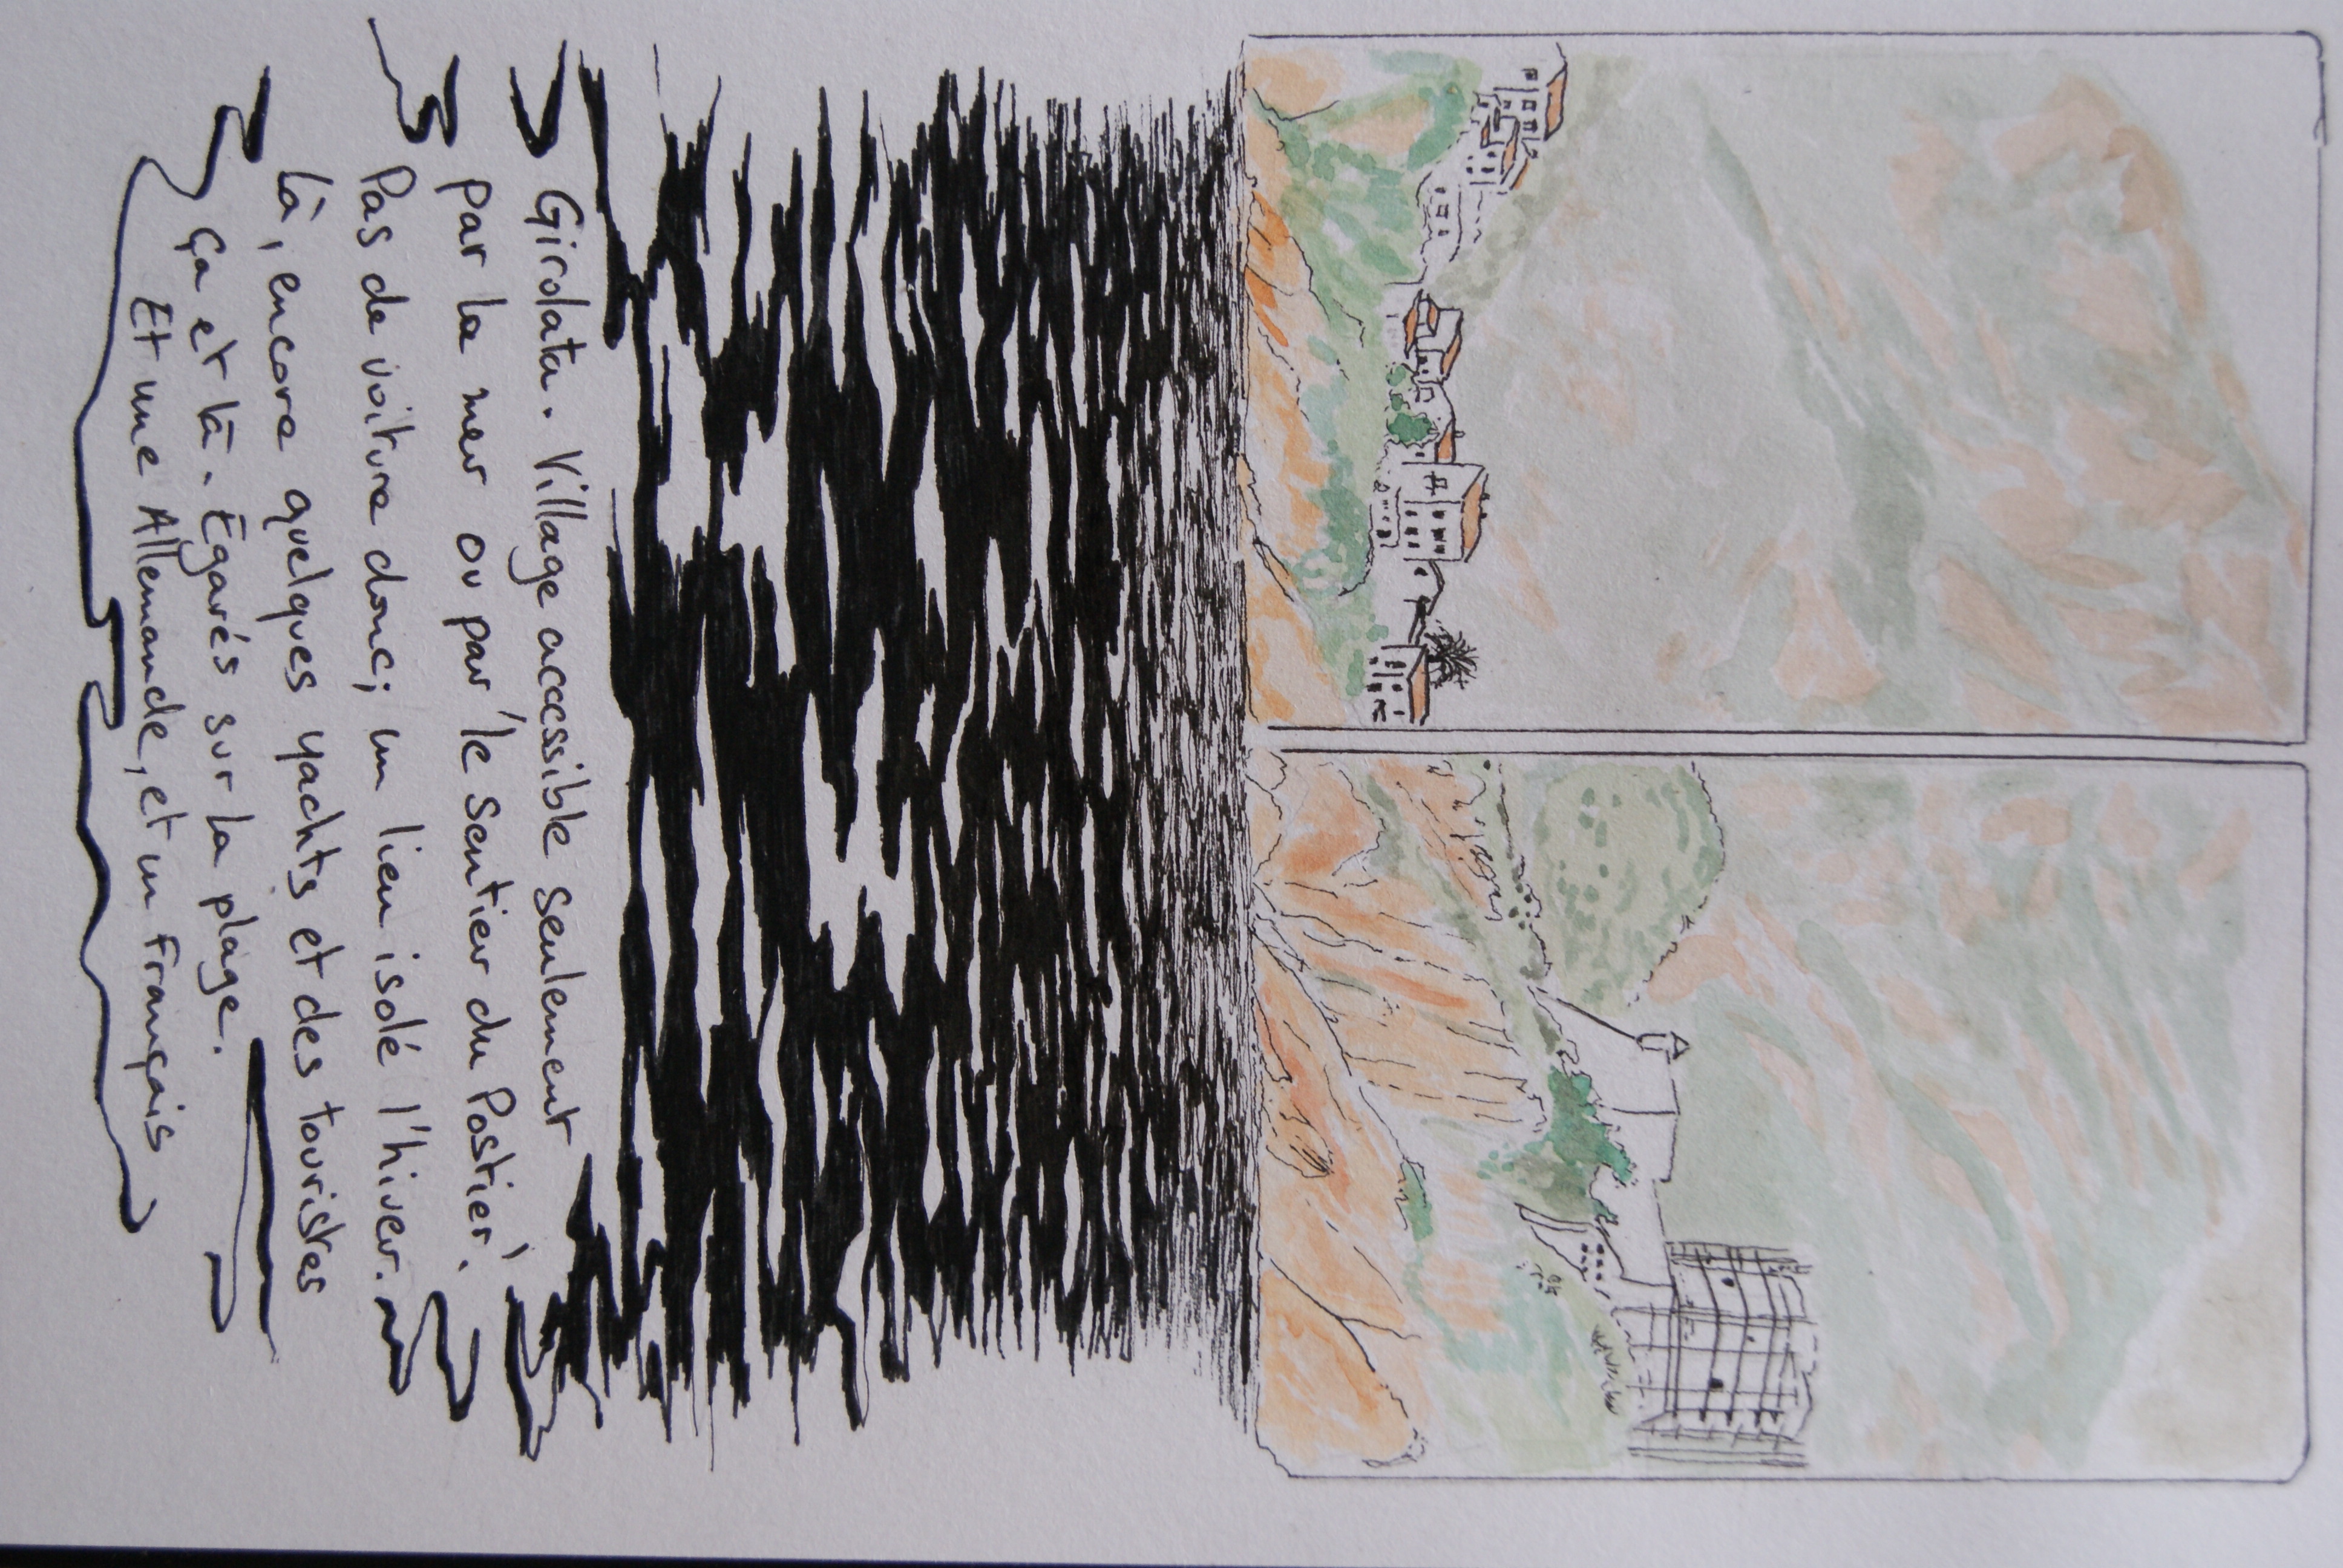 Girolata. Village accessible seulement
par la mer ou par 'le Sentier du Postier'.
Pas de voiture donc; un lieu isolé l'hiver.
Là, encore quelques yachts et des touristes
ça et là. Égarés sur la plage.
Et une Allemande, et un Français